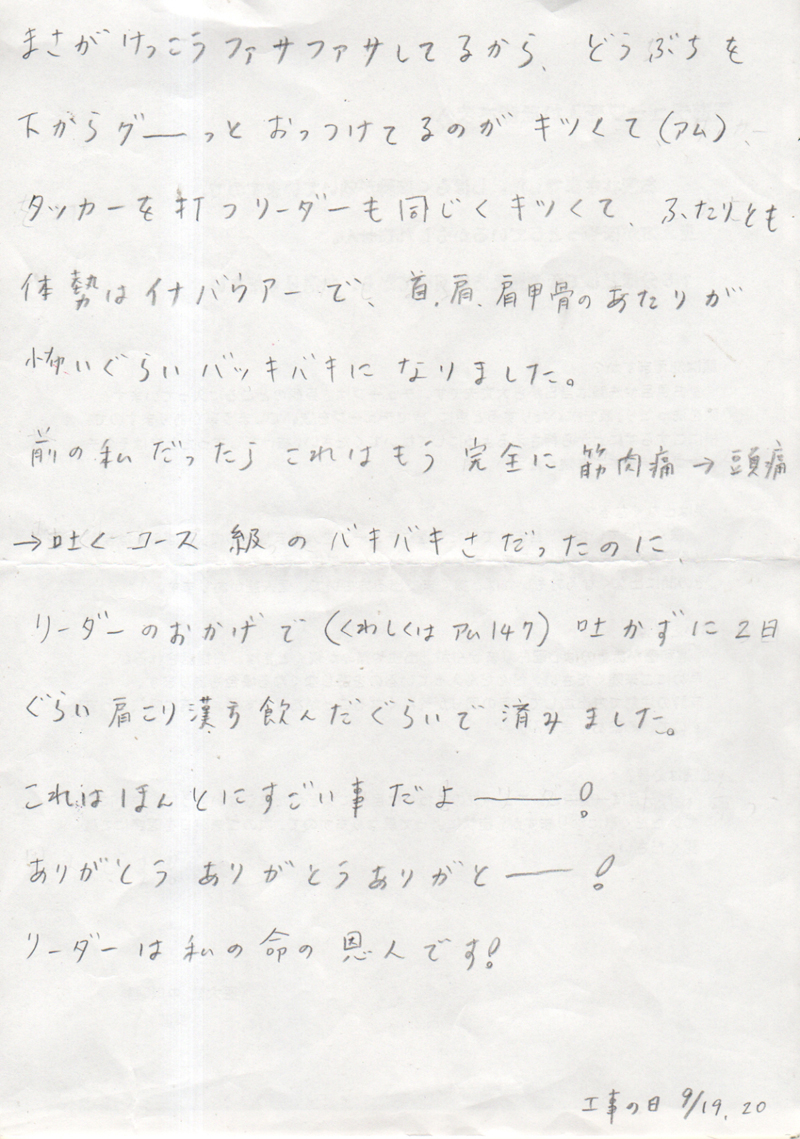 まさがけっこうファサファサしてるから、どうぶちを
下からグーっとおっつけてるのがキツくて(アム)、
タッカーを打つリーダーも同じくキツくて、ふたりとも
体勢はイナバウアーで、首、肩、肩甲骨のあたりが
怖いぐらいバッキバキになりました。
前の私だったらこれはもう完全に筋肉痛→頭痛
→吐くコース級のバキバキさだったのに、
リーダーのおかげで(くわしくはアム147)吐かずに2日
ぐらい肩こり漢方飲んだぐらいで済みました。
これはほんとにすごい事だよー!
ありがとうありがとうありがとー!
リーダーは私の命の恩人です!
工事の日 9/19,20